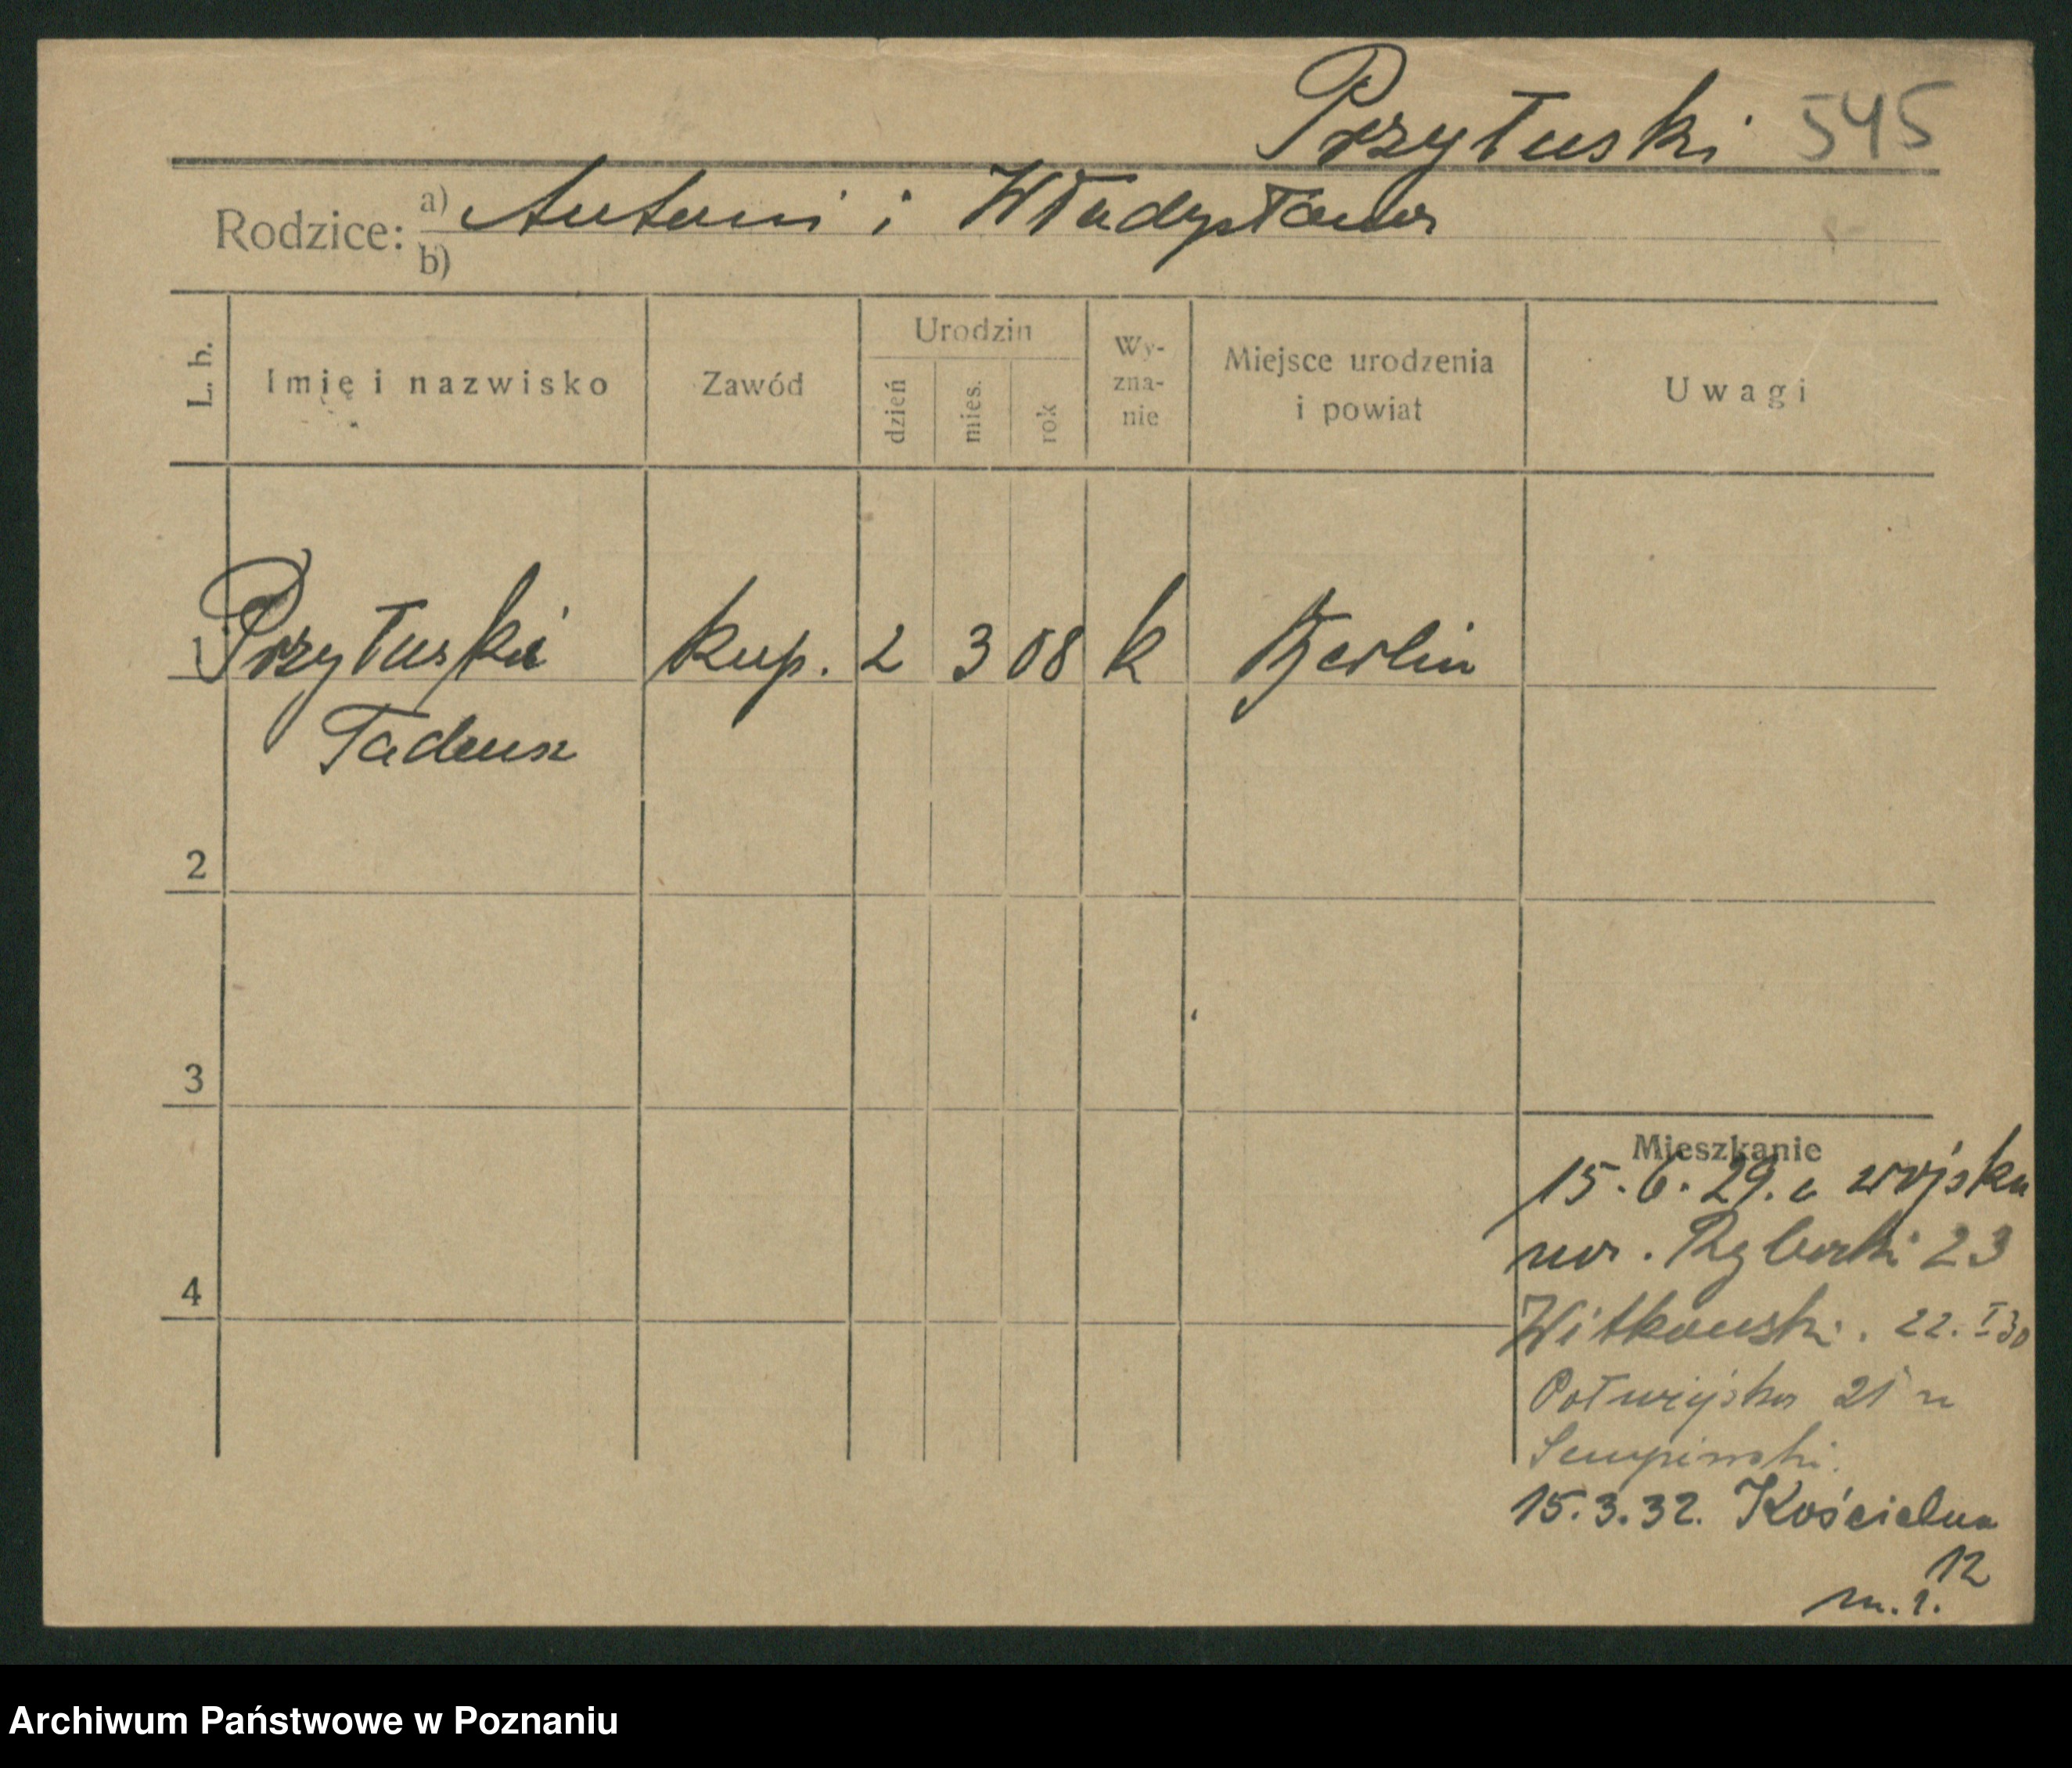 Przytuski 545
Rodzice: a) Antoni i Władysława
b)
L. b.
Imię i nazwisko
Zawód
Urodzin
dzień
mies.
rok
Wy-
zna-
nie
Miejsce urodzenia
i powiat
Uwagi
1 Przytuski kup. 2 3 08 k Berlin
Tadeusz
2
3
4
Mieszkanie
15.6.29. wojska
Rybaki 23
Witkowski. 22. I 30
Półwiejska 21
15.3.32. Kościelna
12
m. 1.
Archiwum Państwowe w Poznaniu